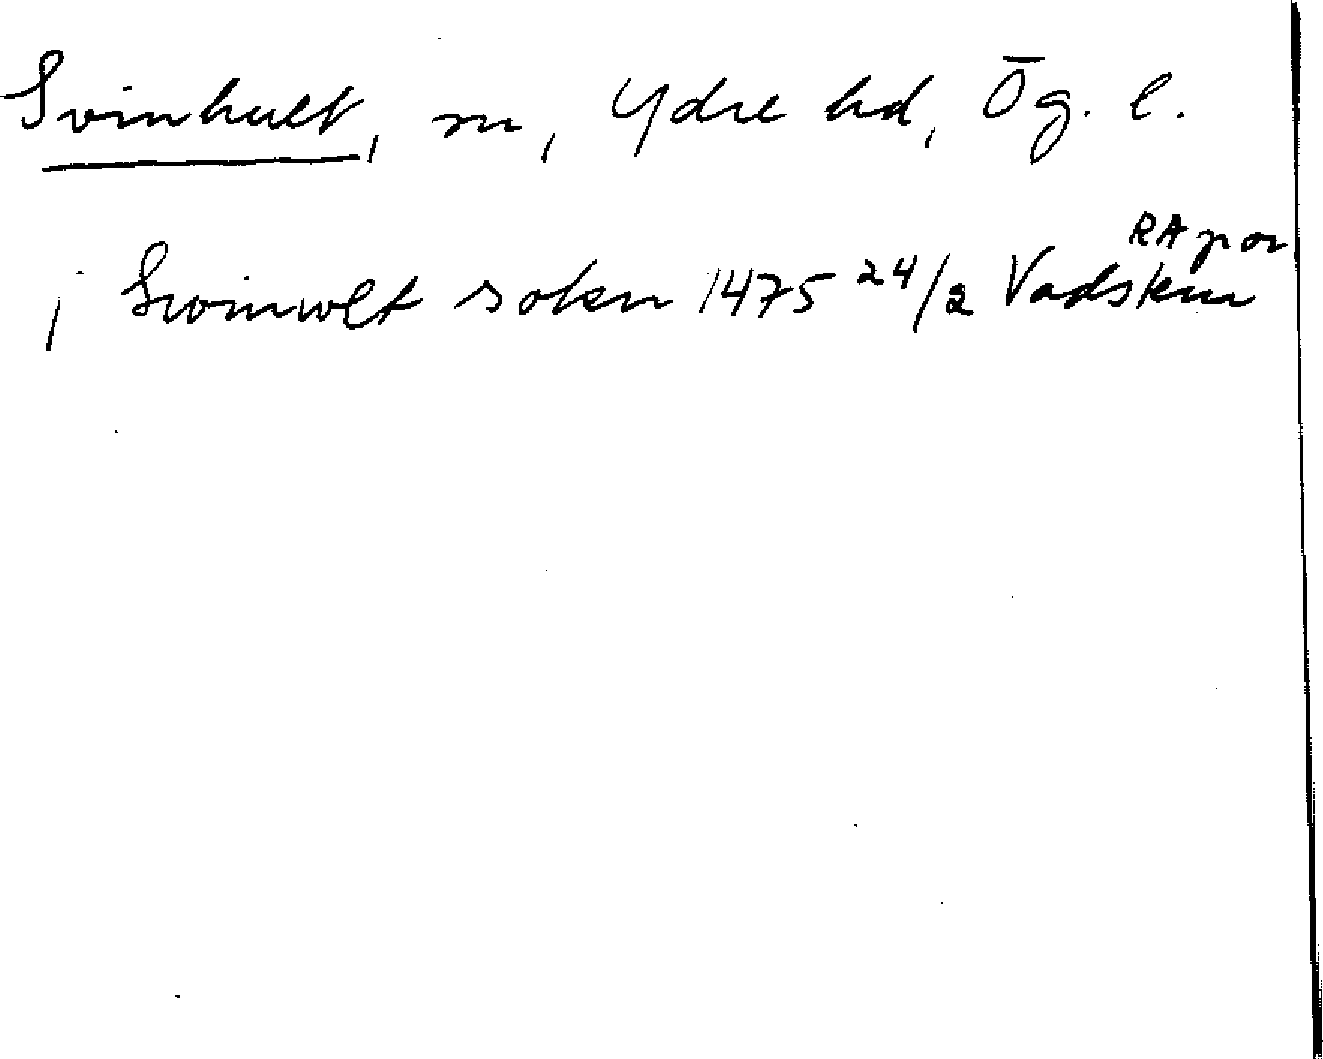 Svinhult, sn, Ydre hd, Ög. l.
RA por
i Swinwlt sokn 1475 24/2 Vadstena